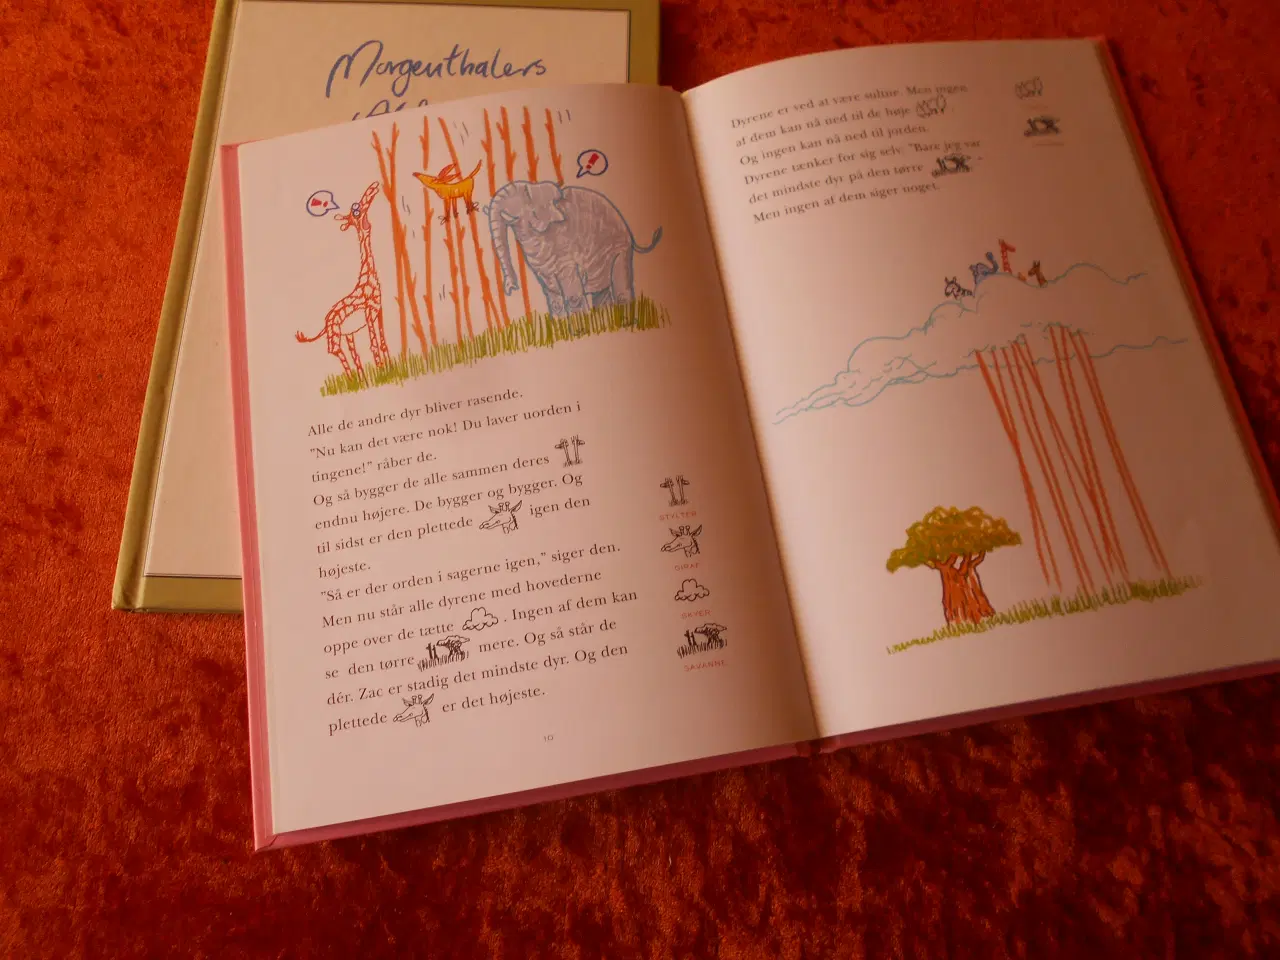 Morgenthalers
Alle de andre dyr bliver rasende.
"Nu kan det være nok! Du laver uorden i
tingene!" råber de.
Og så bygger de alle sammen deres
endnu højere. De bygger og bygger. Og
til sidst er den plettede igen den
højeste.
"Så er der orden i sagerne igen," siger den.
Men nu står alle dyrene med hovederne
oppe over de tætte . Ingen af dem kan
se den tørre mere. Og så står de
dér. Zac er stadig det mindste dyr. Og den
plettede er det højeste.
STYLTER
GIRAF
SKYER
SAVANNE
10
Dyrene er ved at være sultne. Men ingen
af dem kan nå ned til de høje .
Og ingen kan nå ned til jorden.
Dyrene tænker for sig selv: "Bare jeg var
det mindste dyr på den tørre "
Men ingen af dem siger noget.